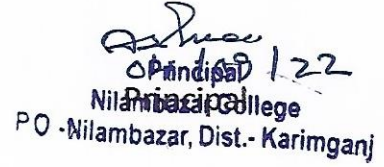 Principal
Nilambazar College
Principal
PO -Nilambazar, Dist.- Karimganj